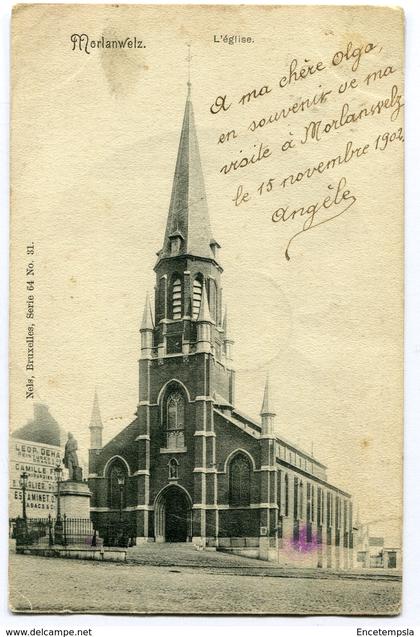 Morlanwelz.
L'église.
A ma chère Olga,
en souvenir de ma
visite à Morlanwelz
le 15 novembre 1902.
Angèle
Nels, Bruxelles, Serie 64 No. 31.
LEOP. DEHA
CAMILLE F
ESTAMINET
TABACS &
www.delcampe.net
Encetempsla